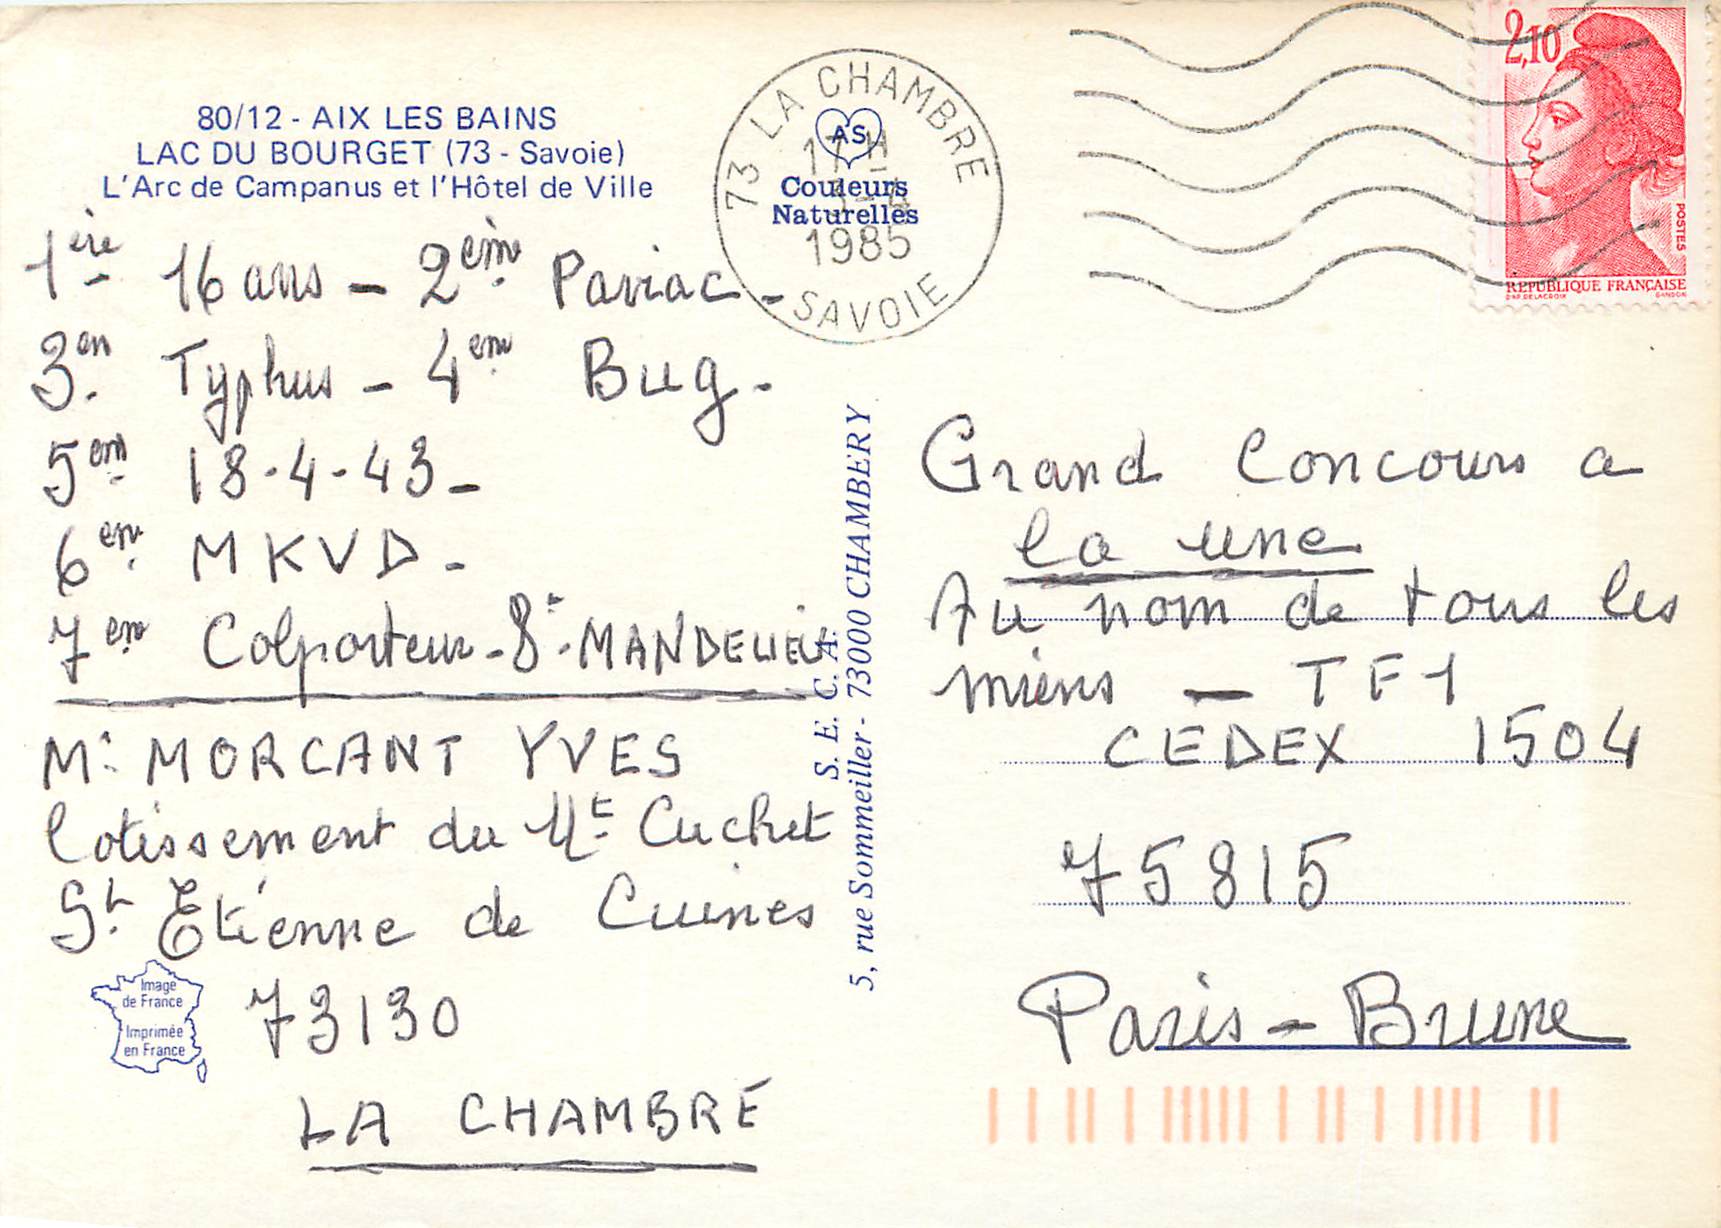 80/12 - AIX LES BAINS
LAC DU BOURGET (73 - Savoie)
L'Arc de Campanus et l'Hôtel de Ville
73 LA CHAMBRE
17 H
1985
SAVOIE
AS
Couleurs
Naturelles
2,10
POSTES
RÉPUBLIQUE FRANÇAISE
D'AP. DELACROIX GANDON
1ère 16 ans - 2èm Paviac -
3en Typhus - 4em Bug -
5em 18-4-43 -
6em MKVD -
7em Colporteur - 8 - MANDELIEU
Mr MORCANT YVES
Lotissement du Mt Cuchet
St Etienne de Cuines
73130
LA CHAMBRE
Image
de France
Imprimée
en France
S. E. C. A.
5, rue Sommeiller - 73000 CHAMBERY
Grand Concours a
la une
Au nom de tous les
miens - TF1
CEDEX 1504
75815
Paris - Brune